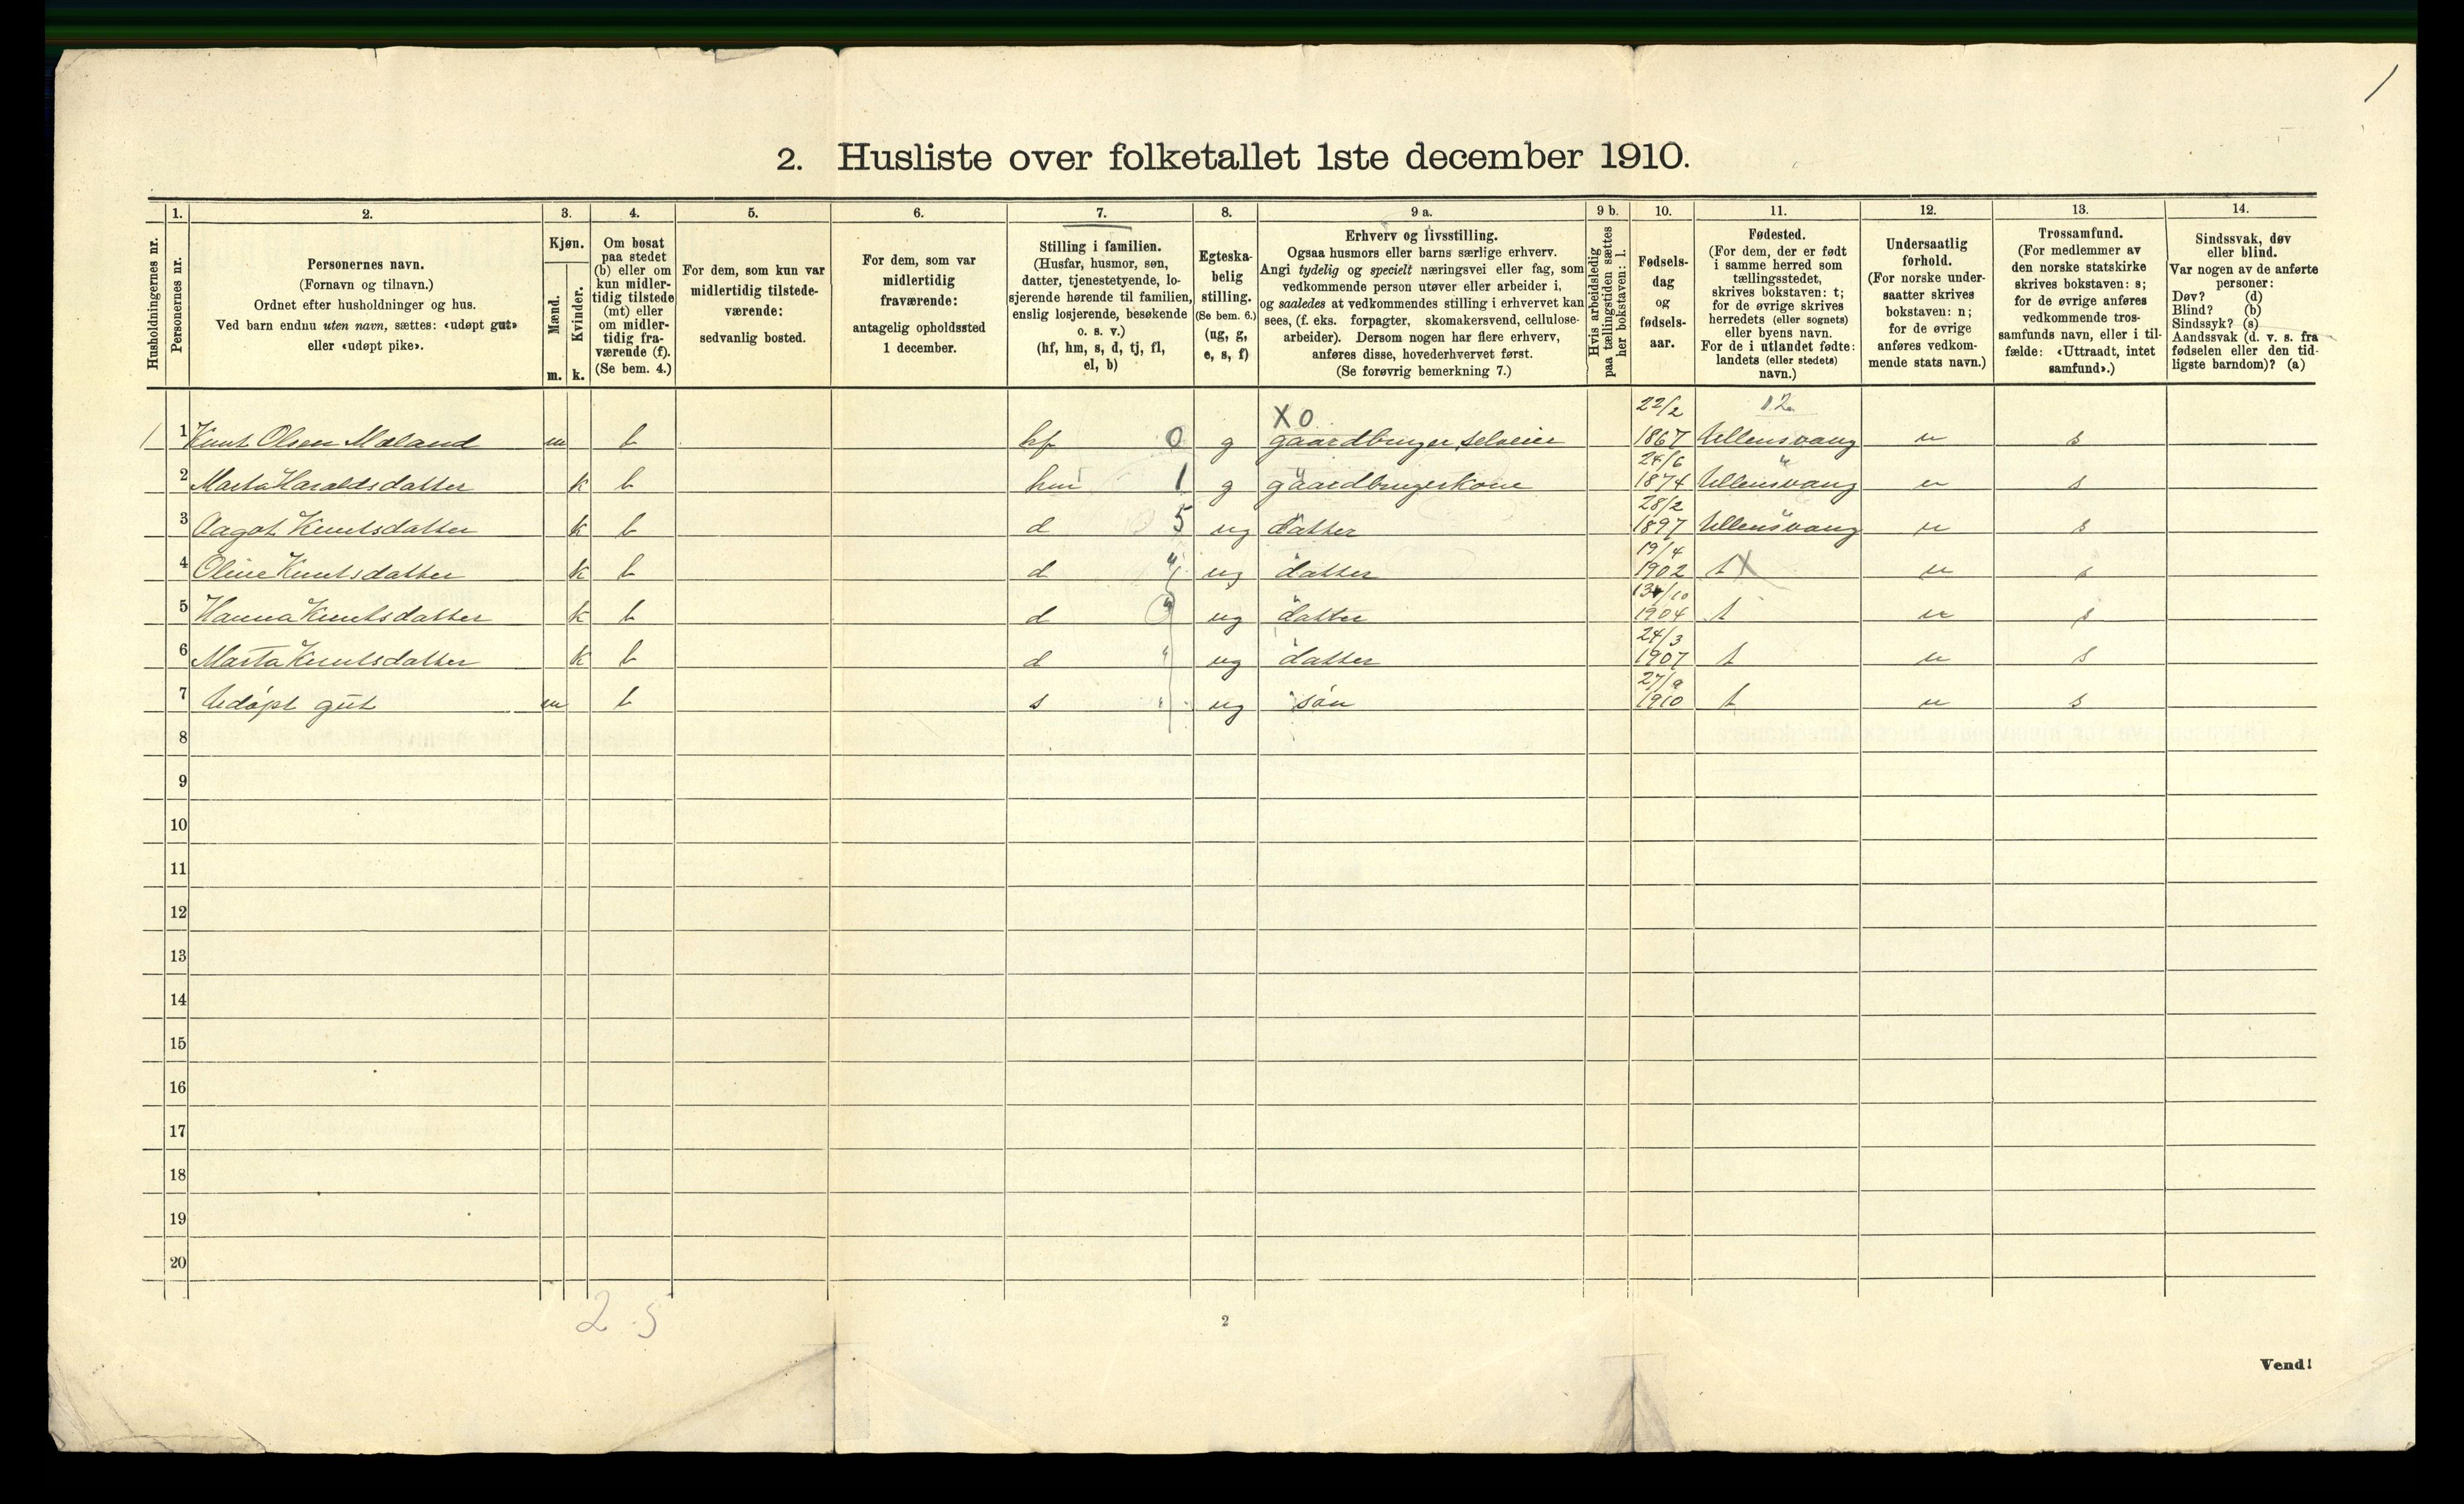 2. Husliste over folketallet 1ste december 1910.
Husholdningernes nr.
1.
Personernes nr.
2.
Personernes navn.
(Fornavn og tilnavn.)
Ordnet efter husholdninger og hus.
Ved barn endnu uten navn, sættes: «udøpt gut»
eller «udøpt pike».
3.
Kjøn.
Mænd.
Kvinder.
m. k.
4.
Om bosat
paa stedet
(b) eller om
kun midler-
tidig tilstede
(mt) eller
om midler-
tidig fra-
værende (f).
(Se bem. 4.)
5.
For dem, som kun var
midlertidig tilstede-
værende:
sedvanlig bosted.
6.
For dem, som var
midlertidig
fraværende:
antagelig opholdssted
1 december.
7.
Stilling i familien.
(Husfar, husmor, søn,
datter, tjenestetyende, lo-
sjerende hørende til familien,
enslig losjerende, besøkende
o. s. v.)
(hf, hm, s, d, tj, fl,
el, b)
8.
Egteska-
belig
stilling.
(Se bem. 6.)
(ug, g,
e, s, f)
9 a.
Erhverv og livsstilling.
Ogsaa husmors eller barns særlige erhverv.
Angi tydelig og specielt næringsvei eller fag, som
vedkommende person utøver eller arbeider i,
og saaledes at vedkommendes stilling i erhvervet kan
sees, (f. eks. forpagter, skomakersvend, cellulose-
arbeider). Dersom nogen har flere erhverv,
anføres disse, hovederhvervet først.
(Se forøvrig bemerkning 7.)
9 b.
Hvis arbeidsledig
paa tællingstiden sættes
her bokstaven: l.
10.
Fødsels-
dag
og
fødsels-
aar.
11.
Fødested.
(For dem, der er født
i samme herred som
tællingsstedet,
skrives bokstaven: t;
for de øvrige skrives
herredets (eller sognets)
eller byens navn.
For de i utlandet fødte:
landets (eller stedets)
navn.)
12.
Undersaatlig
forhold.
(For norske under-
saatter skrives
bokstaven: n;
for de øvrige
anføres vedkom-
mende stats navn.)
13.
Trossamfund.
(For medlemmer av
den norske statskirke
skrives bokstaven: s;
for de øvrige anføres
vedkommende tros-
samfunds navn, eller i til-
fælde: «Uttraadt, intet
samfund».)
14.
Sindssvak, døv
eller blind.
Var nogen av de anførte
personer:
Døv? (d)
Blind? (b)
Sindssyk? (s)
Aandssvak (d. v. s. fra
fødselen eller den tid-
ligste barndom)? (a)
X 0 22/2
1 1 Knut Olsen Mæland m b hf 0 g gaardbruger selveier 1867 Ullensvang n s
24/6
2 Marta Haraldsdatter k b hm 1 g gaardbrugerkone 1874 Ullensvang n s
28/2
3 Aagot Knutsdatter k b d 5 ug datter 1897 Ullensvang n s
19/4
4 Oline Knutsdatter k b d " ug datter 1902 t X n s
5 Hanna Knutsdatter k b d " ug datter 1904 t n s
24/3
6 Marta Knutsdatter k b d " ug datter 1907 t n s
27/9
7 Udøpt gut m b s " ug søn 1910 t n s
8
9
10
11
12
13
14
15
16
17
18
19
20
2 5
2
Vend!